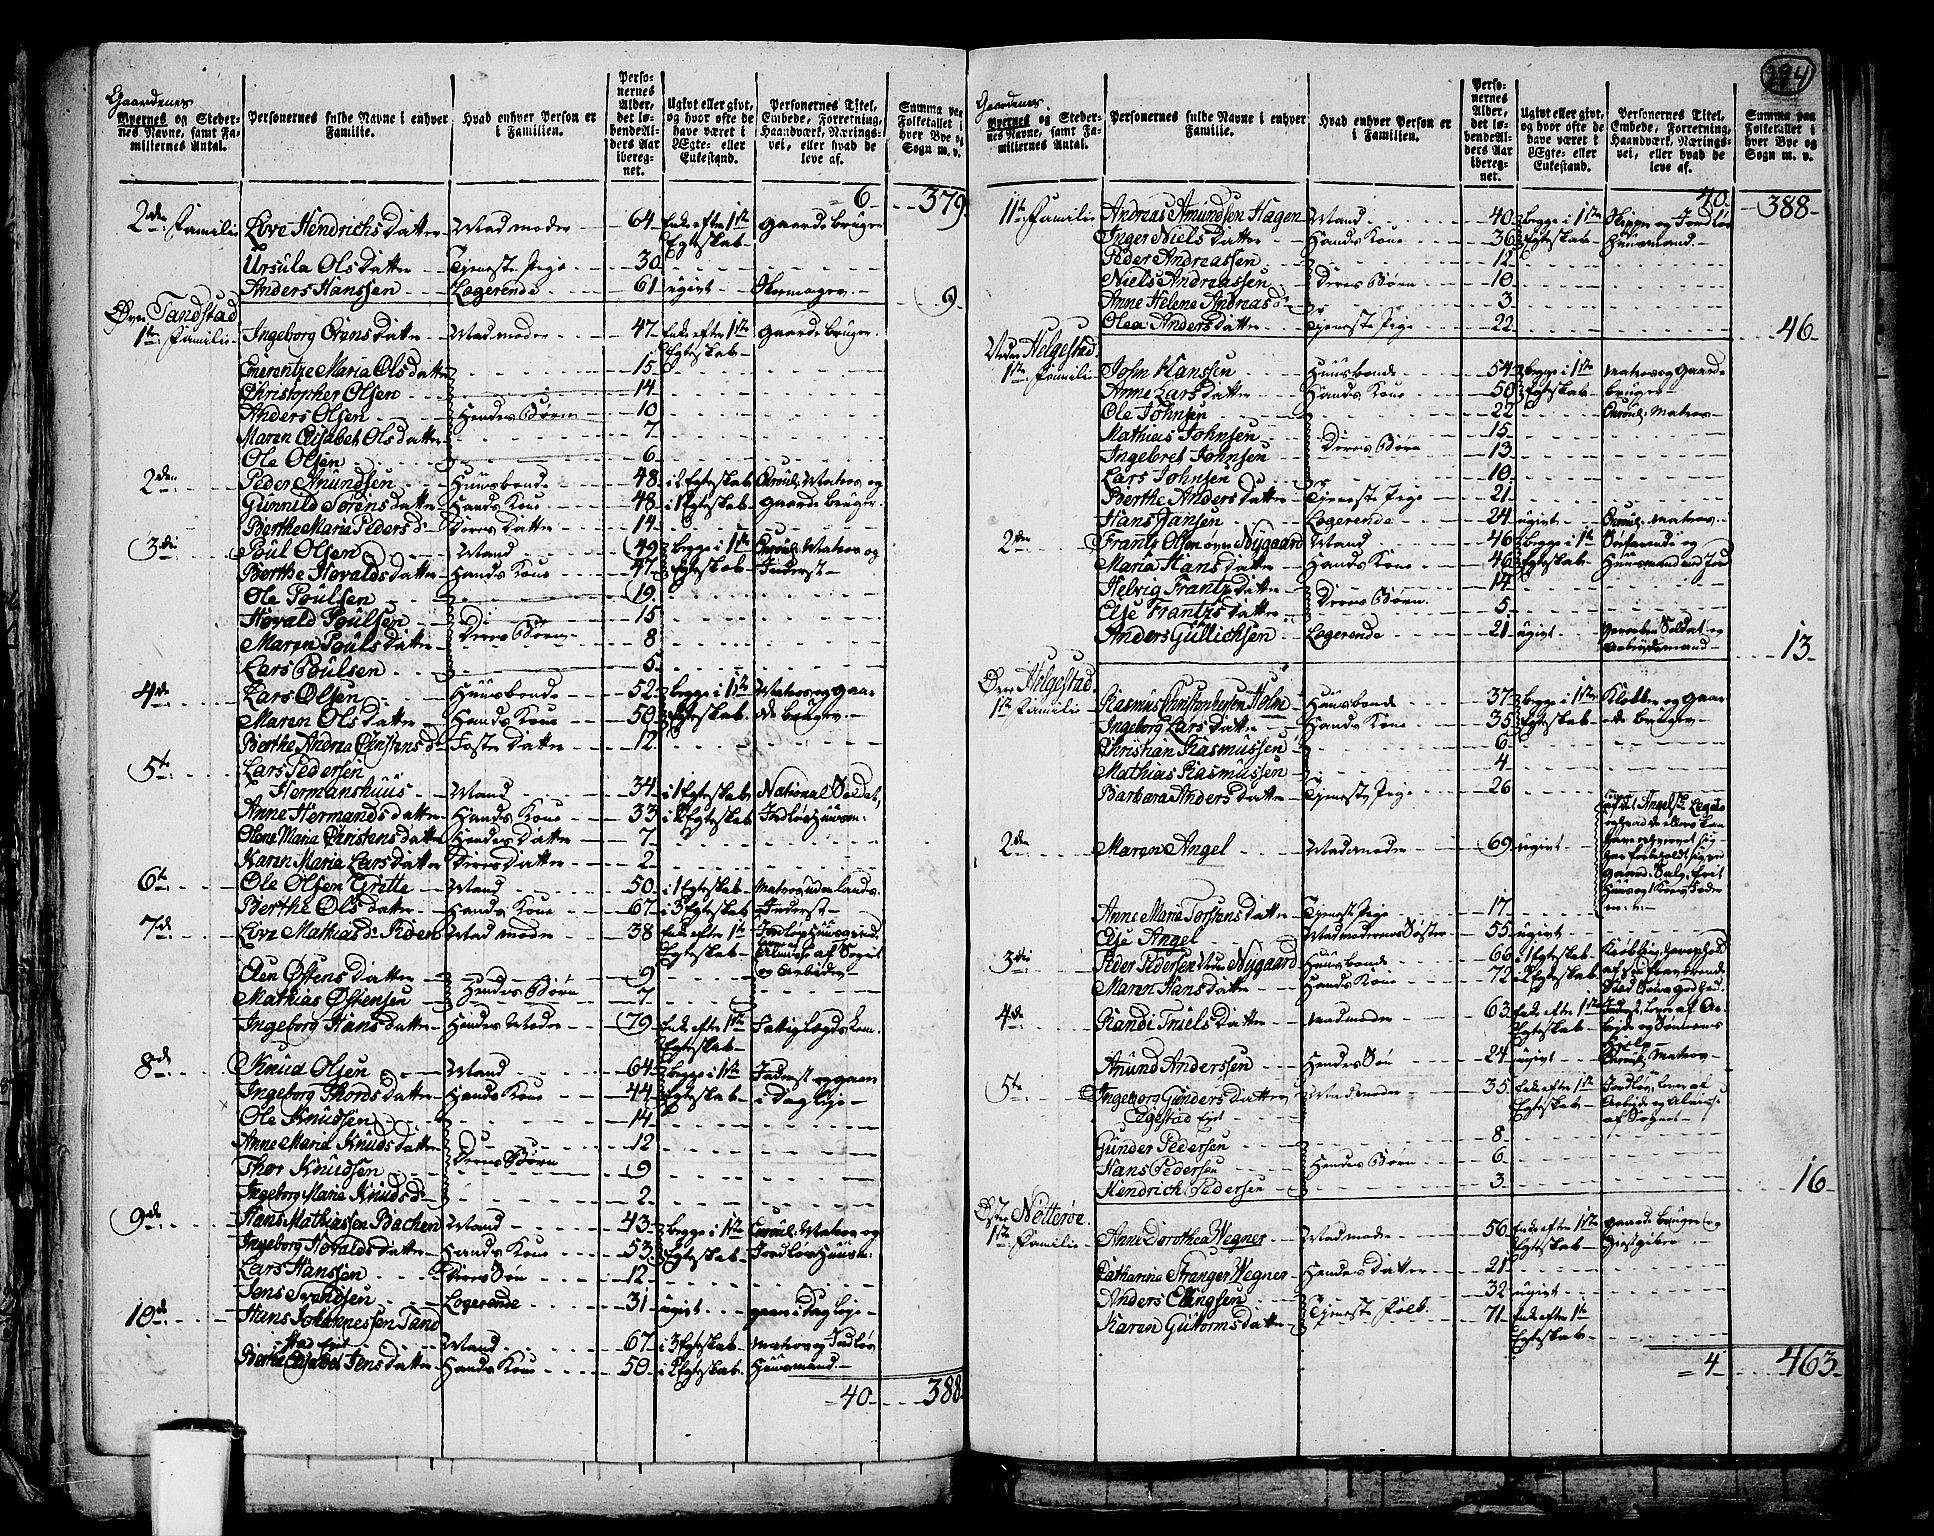 Gaardenes
Byernes og Steder-
nes Navne, samt Fa-
miliernes Antal.
Personernes fulde Navne i enhver
Familie.
Hvad enhver Person er
i Familien.
Perso-
nernes
Alder,
det lø-
bende Al-
ders Aar
ibereg-
net.
Ugivt eller givt,
og hvor ofte de
have været i
Ægte- eller
Enkestand.
Personernes Titel,
Embede, Forretning,
Haandværk, Nærings-
vei, eller hvad de
leve af.
Summa paa
Folketallet i
hver Bye og
Sogn m. v.
6 379
2den Familie Live Hendrichs Datter Madmoder 64 Enke efter 1ste Gaardebruger
Egteskab
Ursula Ols Datter Tjeneste Pige 30
Anders Hanssen Logerende 61 ugivt Skomager 9
Øvre Tandstad
1ste Familie Ingeborg Orens Datter Madmoder 47 Enke efter 1ste Gaardebruger
Egteskab
Emerentze Maria Olsdatter 15
Christopher Olsen 14
Anders Olsen Hendes Børn 10
Maren Elisabet Olsdatter 7
Ole Olsen 6
2den Peder Amundsen Huusbonde 48 i 2 Egteskab Enroul. Matros og
Gunnild Sørens datter Hands Kone 48 i 1 Egteskab Gaardebruger
Berthe Maria Peders D. Deres Datter 14
3die Poul Olsen Mand 49 begge i 1ste Enroul. Matros og
Berthe Hovalds datter Hands Kone 47 Egteskab Inderst
Ole Poulsen 19
Hovald Poulsen 15
Maren Pouls Datter Deres Børn 8
Lars Poulsen 5
4de Lars Olsen Huusbonde 52 begge i 1ste Matros og Gaar-
Maren Ols Datter Hands Kone 50 Egteskab debruger
Berthe Andrea Christens d. Foster Datter 12
5te Lars Pedersen
Hermanshuus Mand 34 i 1 Egteskab National Soldat,
Anne Hermands datter Hands Kone 33 i 2 Egteskab Jordløs Huusm:
Olene Maria Christens datter Hendes Datter 7
Karen Maria Lars datter Deres Datter 2
6te Ole Olsen Gritte Mand 50 i 1 Egteskab Matros udenlands
Berthe Ols datter Hands Kone 67 i 3 Egteskab Inderst
7de Live Mathias d. Madmoder 38 Enke efter 1ste
Egteskab Almisse af Sognet
og Arbeider
Elen Østens Datter 9
Mathias Østensen Hendes Børn 7
Ingeborg Hans datter Hendes Moder 79 Enke efter 1ste Fattig Lægds Kom.
Egteskab
8de Knud Olsen Mand 64 begge i 1ste Inderst og gaaer
Ingeborg Thords Datter Hands Kone 44 Egteskab i Dagleje
Ole Knudsen 14
Anne Maria Knuds datter 12
Thor Knudsen Deres Børn 9
Ingeborg Marie Knuds d. 2
9de Hans Mathiassen Bachen Mand 43 begge i 1ste Enroul. Matros og
Ingeborg Hovalds datter Hands Kone 53 Egteskab Jordløs Huusm:
Lars Hanssen Deres Søn 12
Jens Svendsen Logerende 31 ugivt gaaer i Dagleje
10de Hans Johannessen Tand
stad Eiet Mand 67 i 3 Egteskab Matros og Jordløs
Berthe Elisabet Jens datter Hands Kone 50 i 2 Egteskab Huusmand
40 388
294
Gaardenes
Byernes og Steder-
nes Navne, samt Fa-
miliernes Antal.
Personernes fulde Navne i enhver
Familie.
Hvad enhver Person er
i Familien.
Perso-
nernes
Alder,
det lø-
bende Al-
ders Aar
ibereg-
net.
Ugivt eller givt,
og hvor ofte de
have været i
Ægte- eller
Enkestand.
Personernes Titel,
Embede, Forretning,
Haandværk, Nærings-
vei, eller hvad de
leve af.
Summa paa
Folketallet i
hver Bye og
Sogn m. v.
40 388
11te Familie Andreas Amundsen Hagen Mand 40 begge i 1ste Skipper og Jordløs
Inger Niels Datter Hands Kone 36 Egteskab Huusmand
Peder Andreassen 12
Niels Andreassen Deres Børn 10
Anne Helene Andreas d. 3
Olea Anders datter Tjeneste Pige 22 46
Nedre Helgestad
1ste Familie John Hanssen Huusbonde 54 begge i 1ste Matros og Gaard-
Anne Lars datter Hands Kone 50 Egteskab bruger
Ole Johnsen 22 Enroul. Matros
Mathias Johnsen 15
Ingebret Johnsen Deres Børn 13
Lars Johnsen 10
Berthe Anders Datter Tjeneste Pige 21
Hans Jansen Logerende 24 ugivt Enroul. Matros
2den Frantz Olsen øvre Nygaard Mand 46 begge i 1ste Søefarende og
Maria Hans datter Hands Kone 46 Egteskab Huusmand med Jord
Helvig Frantz datter 14
Else Frantzs datter Deres Børn 5
Anders Gullichsen Logerende 21 ugivt Geworben Soldat og
Arbeidsmand 13
Øvre Helgestad
1ste Familie Rasmus Christophersen Holm Huusbonde 37 begge i 1ste Klokker og Gaar-
Ingeborg Lars datter Hands Kone 35 Egteskab debruger
Christian Rasmussen 6
Mathias Rasmussen 4
Barbara Anders datter Tjeneste Pige 26
2den Maren Angel Madmoder 69 ugivt
Anne Maria Torstens datter Tjeneste Pige 17
Else Angel Madmoderens Søster 55 ugivt
3die Peder Pedersen Nedre Nygaard Huusbonde 66 i 1 Egteskab
Maren Hans datter Hands Kone 72 i 2 Egteskab
4de Randi Truels Datter Madmoder 63 Enke efter 1ste Inderst, Lever af Ar-
Egteskab bejde og Sønnens
Hjelp
Anund Anderssen Hendes Søn 24 ugivt Enroul. Matros
5te Ingeborg Gunders Datter Madmoder 35 Enke efter 1ste Jordløs, Lever af
Egestad Eiet Egteskab Arbeide og Almisse
af Sognet
Gunder Pedersen 8
Hans Pedersen Hendes Børn 6
Hendrich Pedersen 3 16
Østre Neiterøe
1ste Familie Anne Dorothea Wegner Madmoder 56 Enke efter 1ste Gaardebruger og
Egteskab Giestgiber
Catharina Stranger Wegner Hendes datter 21
Anders Ellingsen 32 ugivt
Karen Guttorms datter Tjeneste Folk 71 Enke efter 1te
Egteskab
4 463